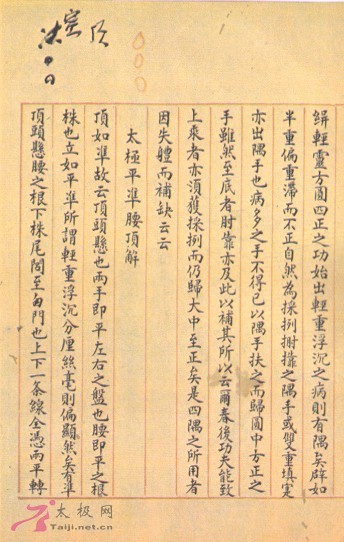 輕靈方圓四正之功始出輕重浮沉之病則有隅矣辟如
半重偏重滯而不正自然為採挒肘靠之隅手或雙重填寔
亦出隅手也病多之手不得已以隅手扶之而歸圓中方正之
手雖然至底者肘靠亦及此以補其所以云爾春後功夫能致
上乘者亦須獲採挒而仍歸大中至正矣是四隅之所用者
因失體而補缺云云
太極平準腰頂解
頂如準故云頂頭懸也兩手即平左右之盤也腰即平之根
株也立如平準所謂輕重浮沉分厘絲毫則偏顯然矣有準
頂頭懸腰之根下株尾閭至囟門也上下一條線全憑兩平轉
太极网
Taiji.net.cn